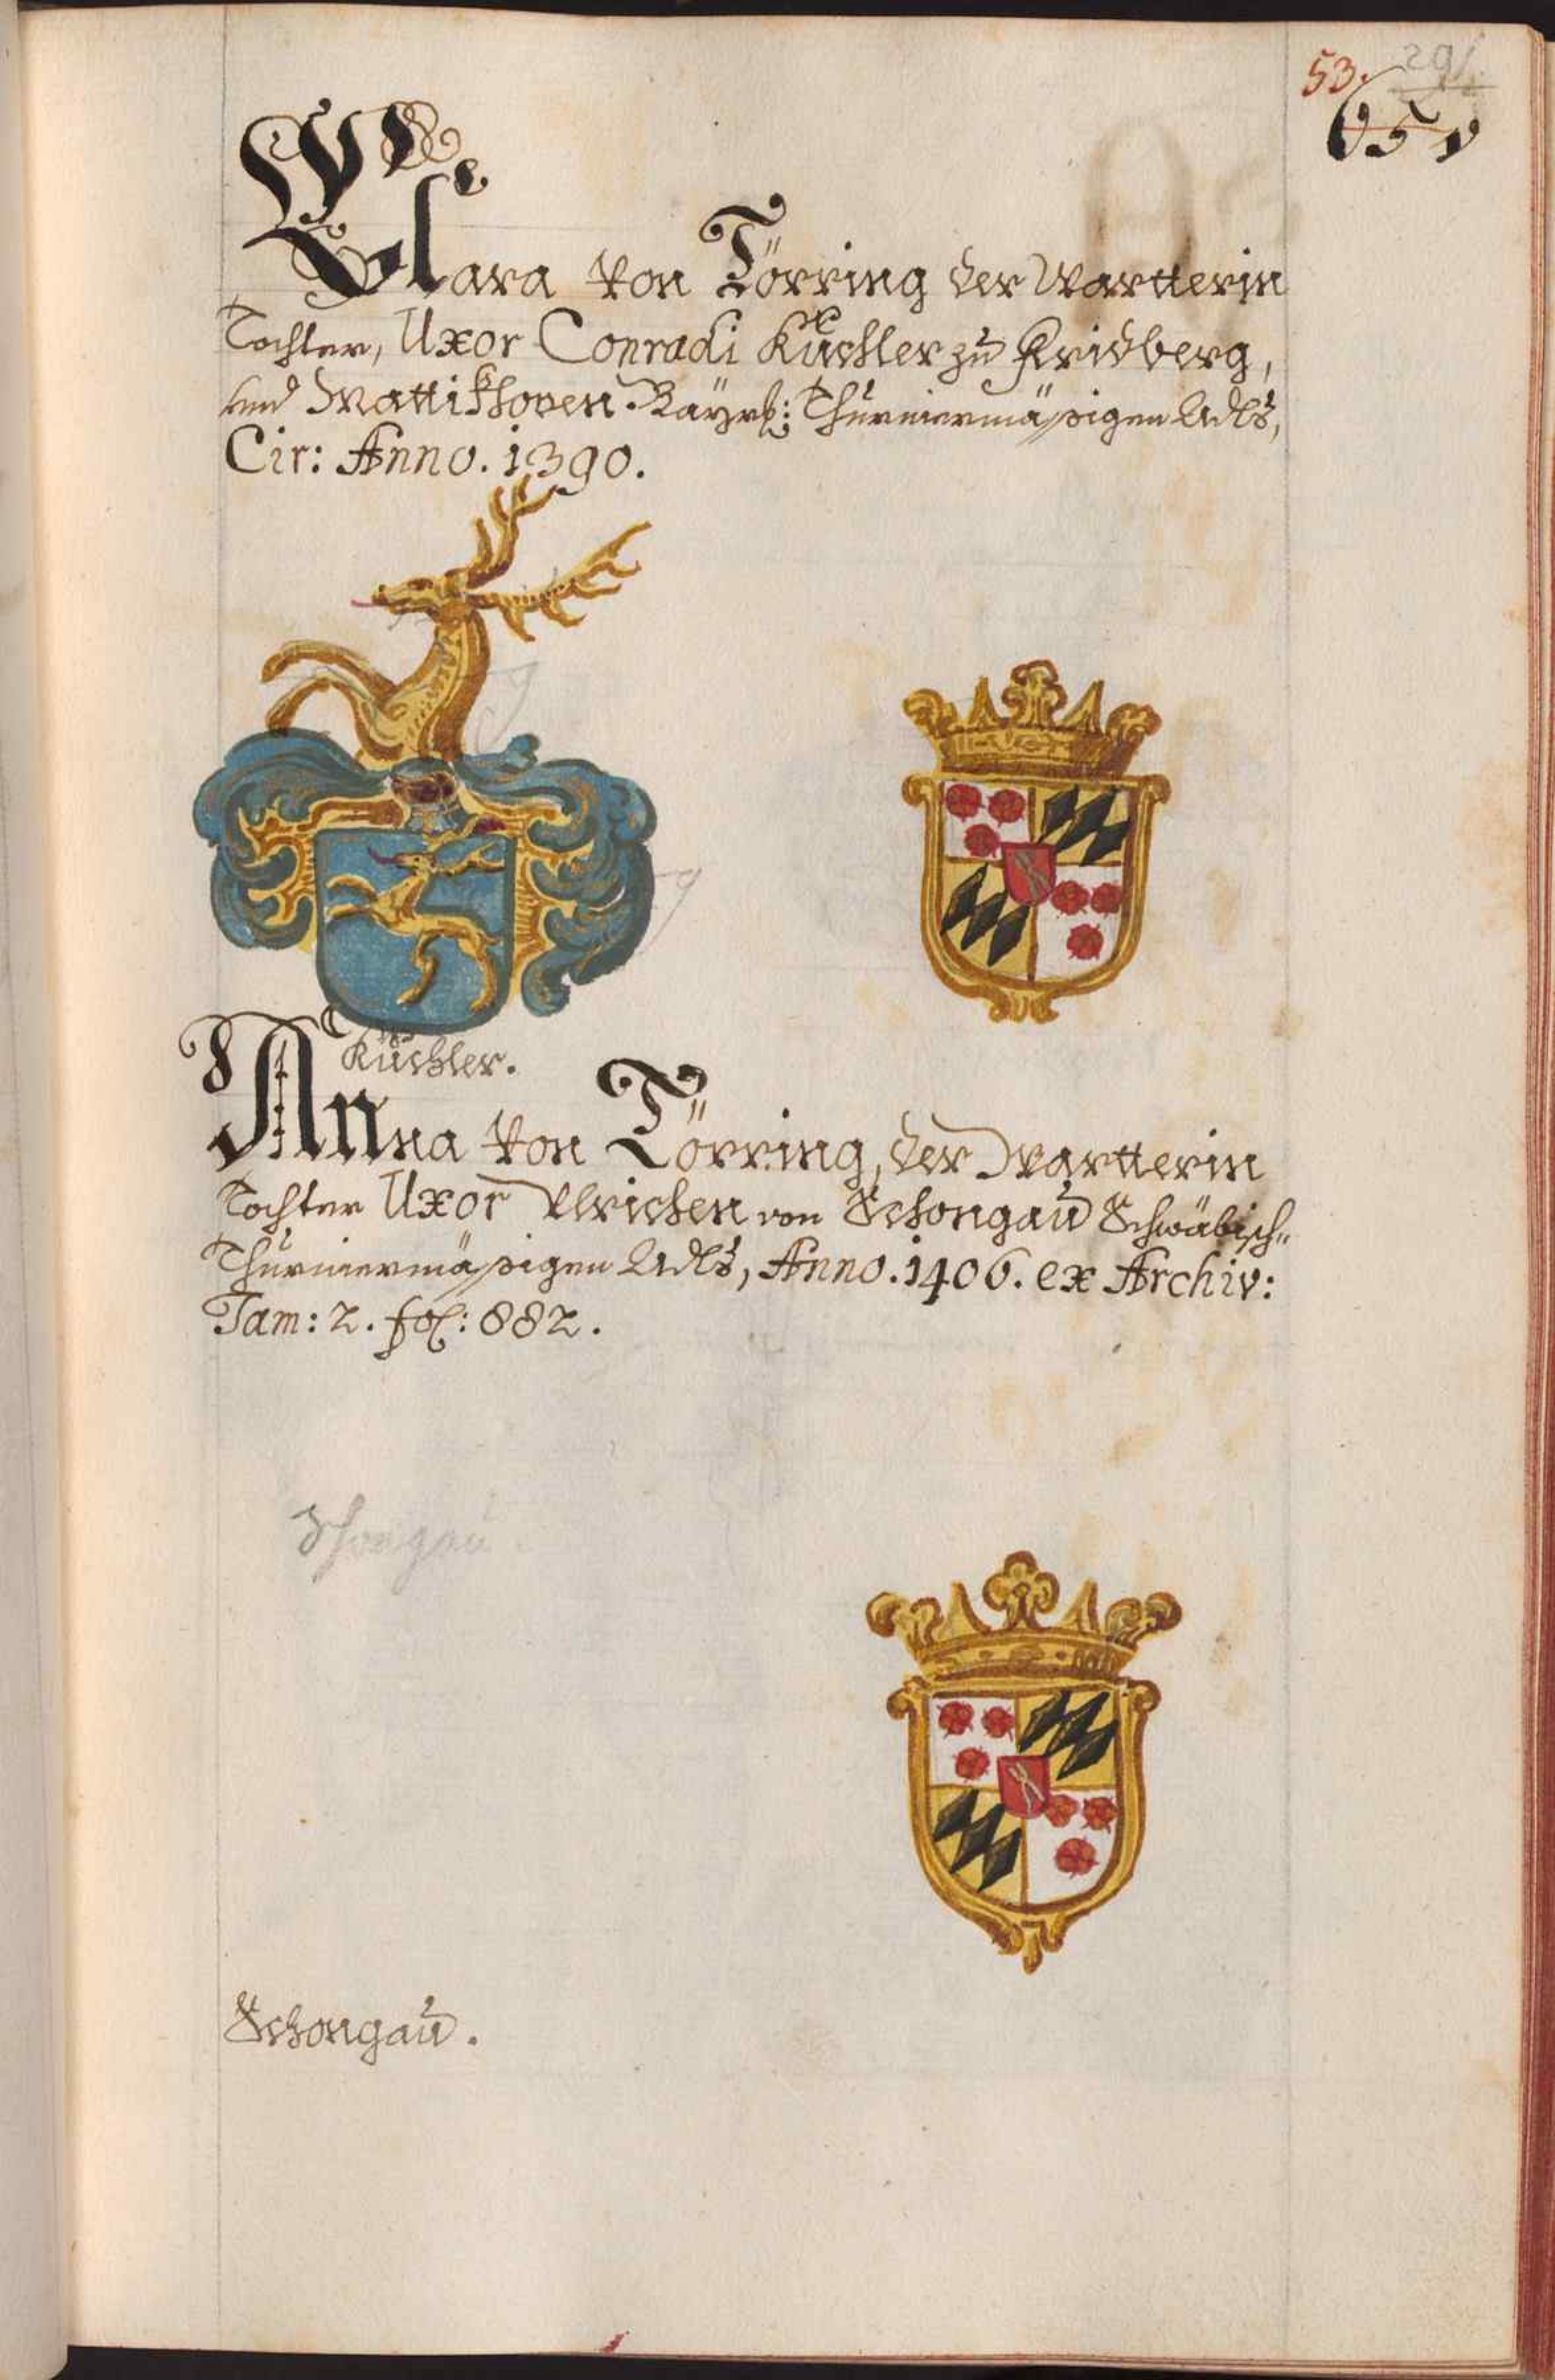 53. 291
651
Clara von Törring der Wartterin
Tochter, Uxor Conradi Küchler zu Fridberg,
und Mattikhoven. Bayrh: Thurniermäßigen Adls,
Cir: Anno. 1390.
Küchler.
Anna von Törring, der Wartterin
Tochter Uxor Ulrichen von Schongau Schwäbisch„
Thurniermäßigen Adls, Anno. 1406. ex Archiv:
Tam: 2. fol: 882.
Schongau
Schongau.